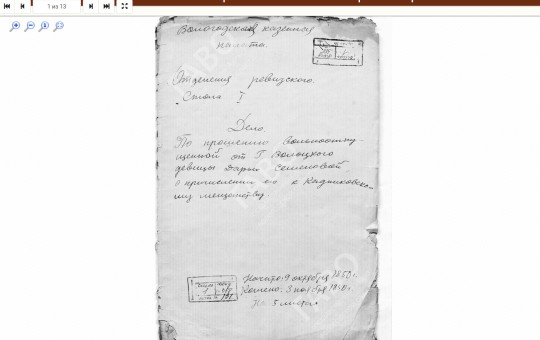 1 из 13
Вологодская казенная
палата.
Отделения ревизского.
Стола I
Дело.
По прошению Вольноотпу-
щенной от Г. Волоцкого
девицы Дарьи Семеновой
о причислении ее к Кадниковско-
му мещанству.
Начато: 9 октября 1850 г.
Кончено: 3 ноября 1850 г.
На листах